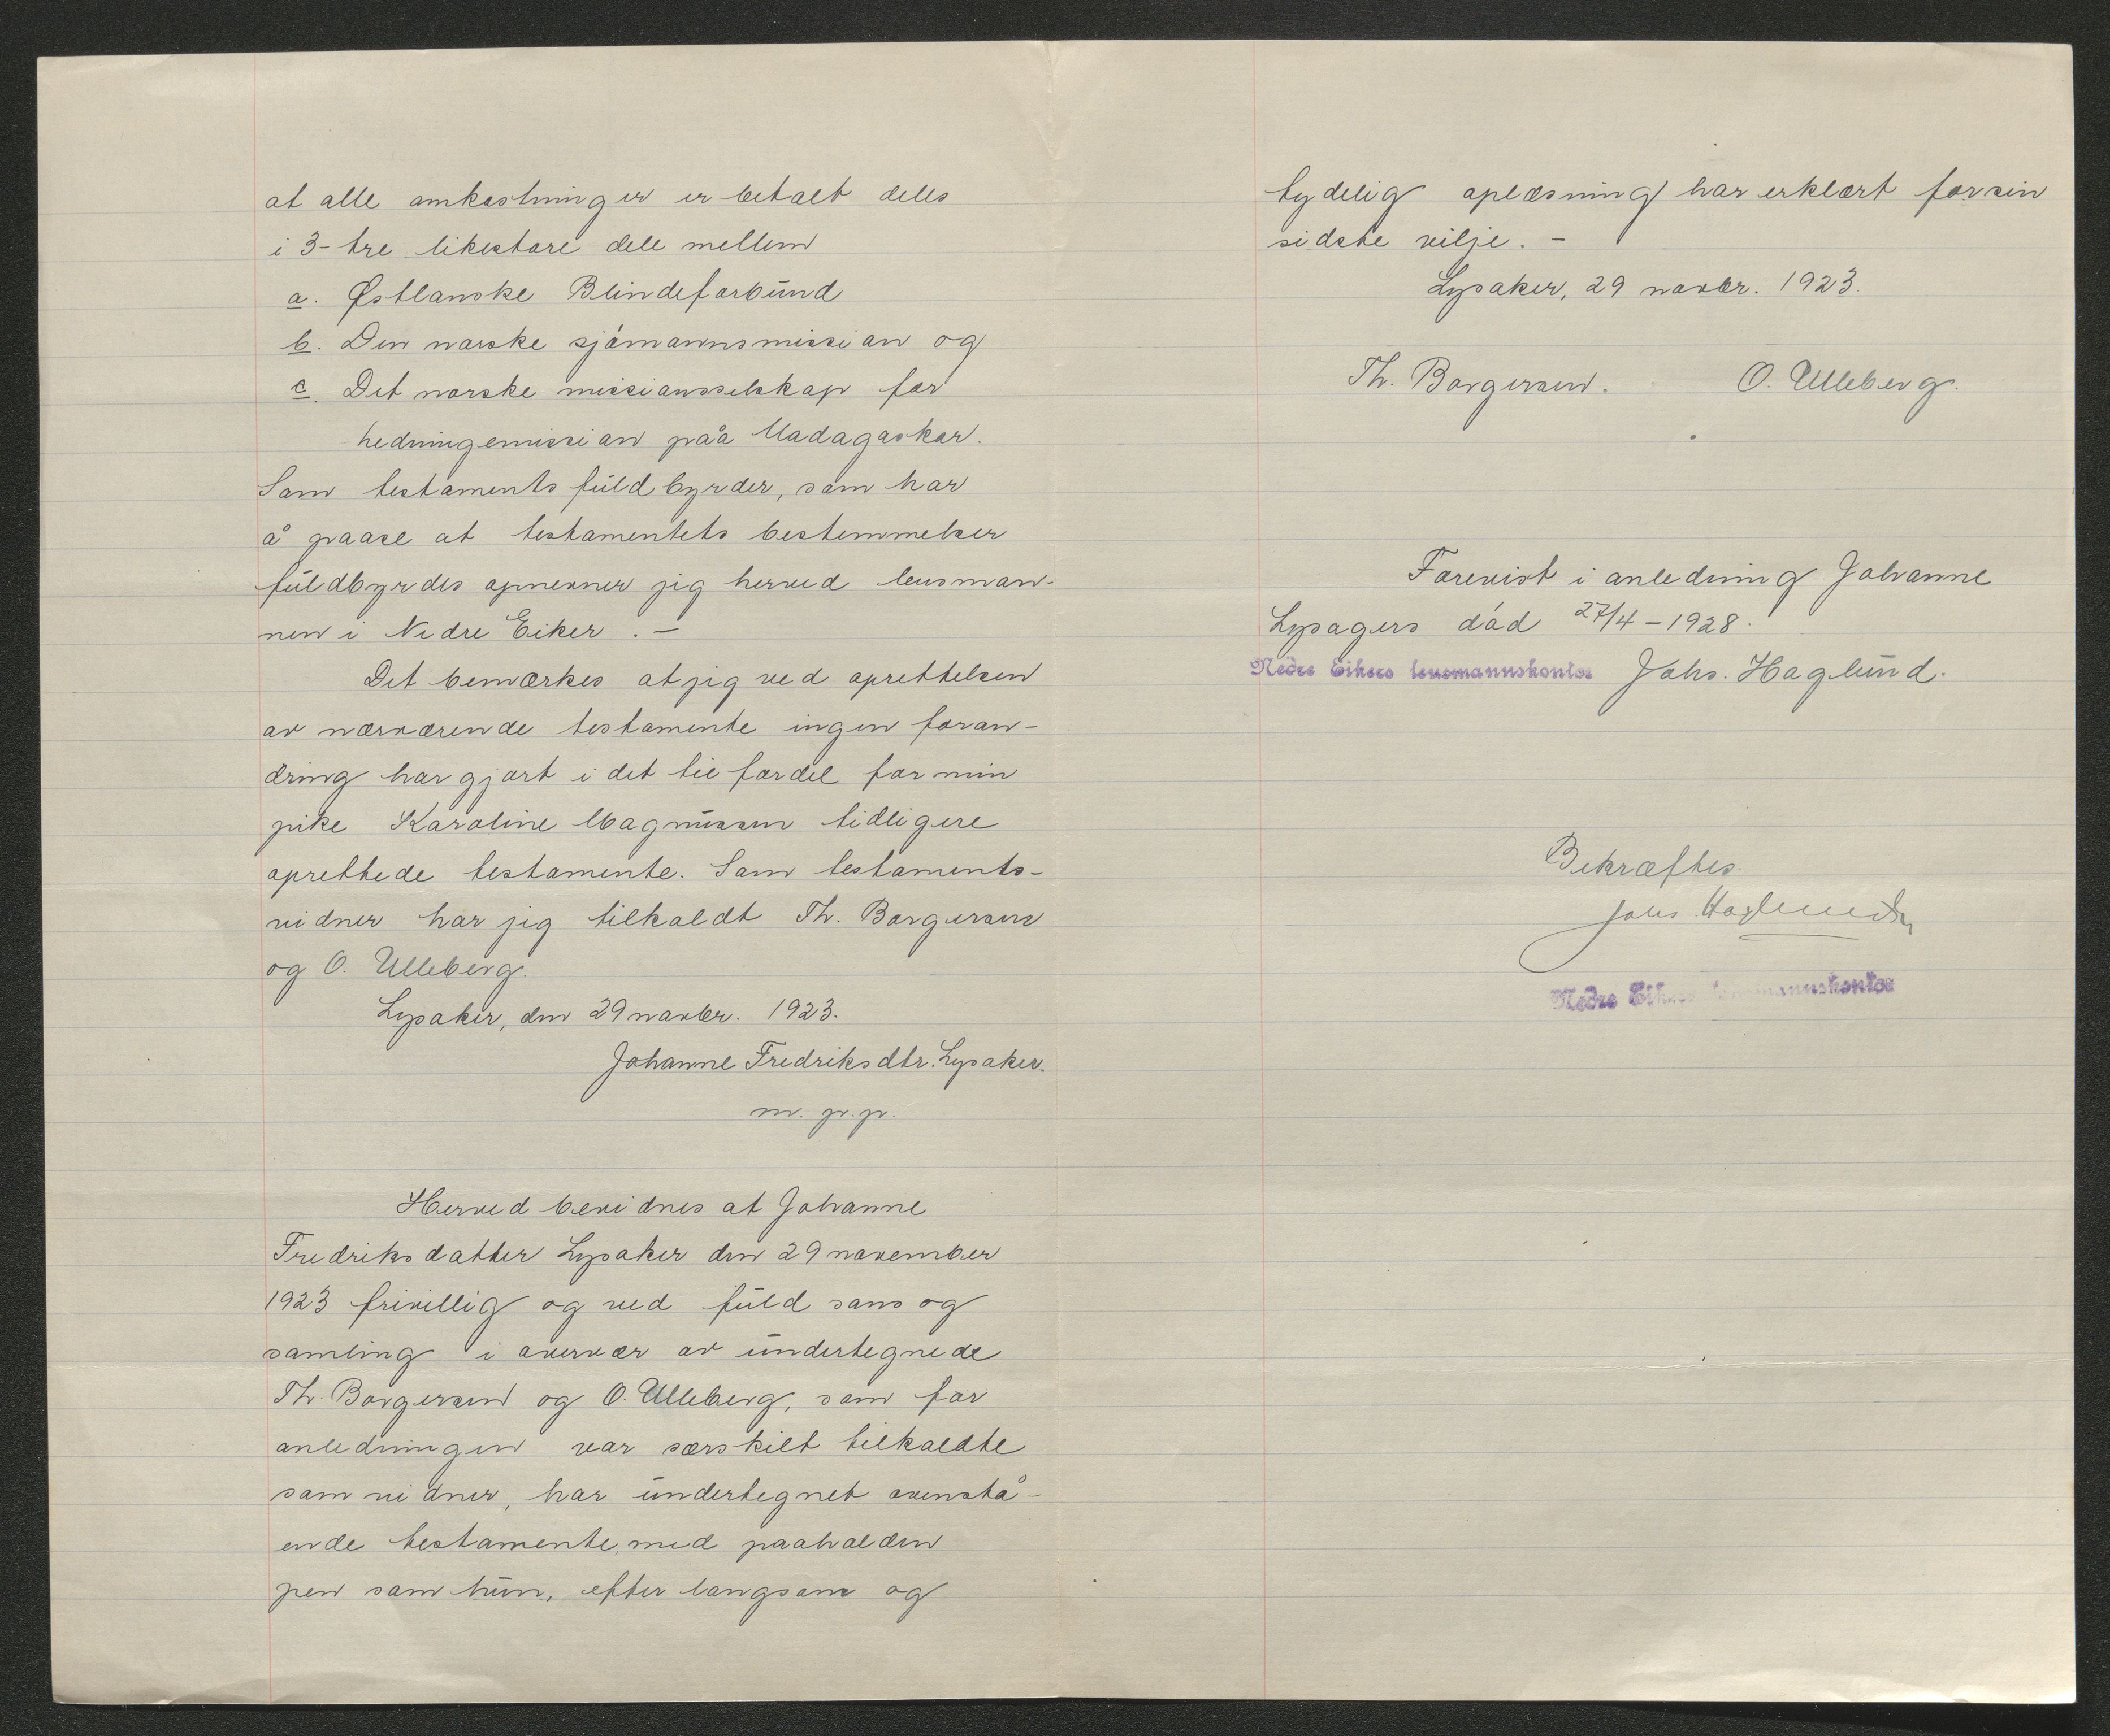 at alle omkostninger er betalt deles
i 3-tre likestore dele mellem
a. Østlanske Blindeforbund
b. Den norske sjømannsmission og
c. Det norske missionsselskap for
hedningemission påa Madagaskar.
Som testaments fuldbyrder, som har
å paase at testamentets bestemmelser
fuldbyrdes opnevner jeg herved lensman-
nen i Nedre Eiker. —
Det bemærkes at jeg ved oprettelsen
av nærværende testamente ingen foran-
dring har gjort i det til fordel for min
pike Karoline Magnussen tidligere
oprettede testamente. Som testaments-
vidner har jeg tilkaldt Th. Borgersen
og O. Ulleberg.
Lysaker, den 29 novbr. 1923.
Johanne Fredriksdtr. Lysaker.
m. p. p.
Herved bevidnes at Johanne
Fredriksdatter Lysaker den 29 november
1923 frivillig og ved fuld sans og
samling i overvær av undertegnede
Th. Borgersen og O. Ulleberg, som for
anledningen var særskilt tilkaldte
som vidner, har undertegnet ovenstå-
ende testamente med paaholden
pen som hun, efter langsom og
tydelig oplæsning har erklært for sin
sidste vilje. —
Lysaker, 29 novbr. 1923.
Th. Borgersen. O. Ulleberg.
Forevist i anledning Johanne
Lysagers død 27/4 - 1928.
Nedre Eikers lensmannskontor Johs. Haglund.
Bekræftes
Johs Haglund
Nedre Eikers lensmannskontor